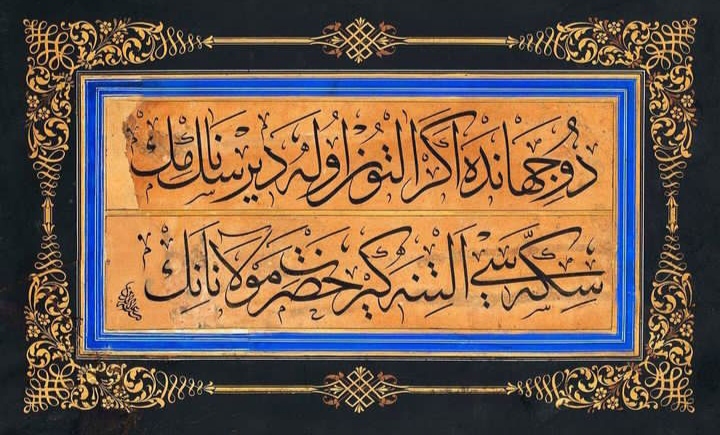 دو جهانده اكر التون اوله ديرسك نامك
سكه سي التنه كير حضرت مولانانك